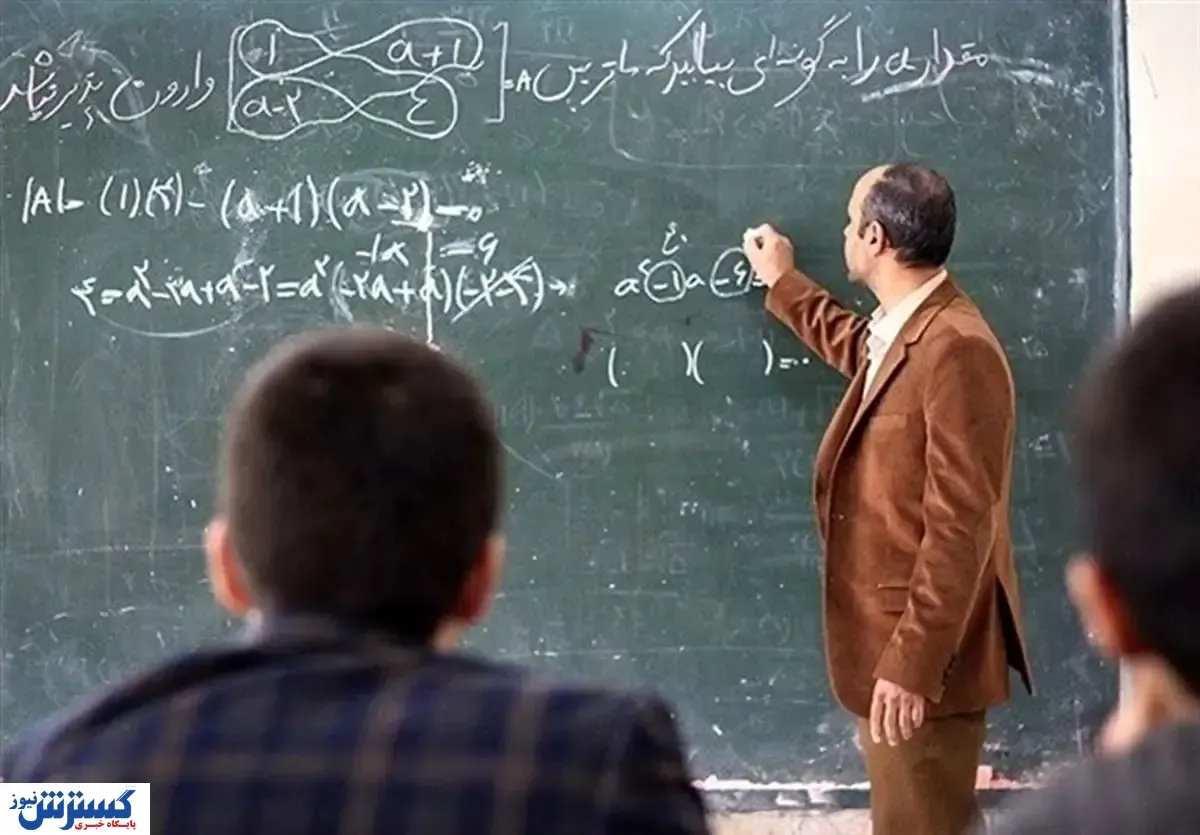 مقدار a را به گونه‌ای بیابید که ماتریس A= [ 1 a+1 a-2 4 ] وارون پذیر نباشد
|A| = (1)(4) - (a+1)(a-2) = 0
-1a = 6
4 = a² - 2a + a - 2 = a² (-2a + a) (-2-4) →
a² -1 a -6 =
( )( ) = 0
گسترش نیوز
پایگاه خبری